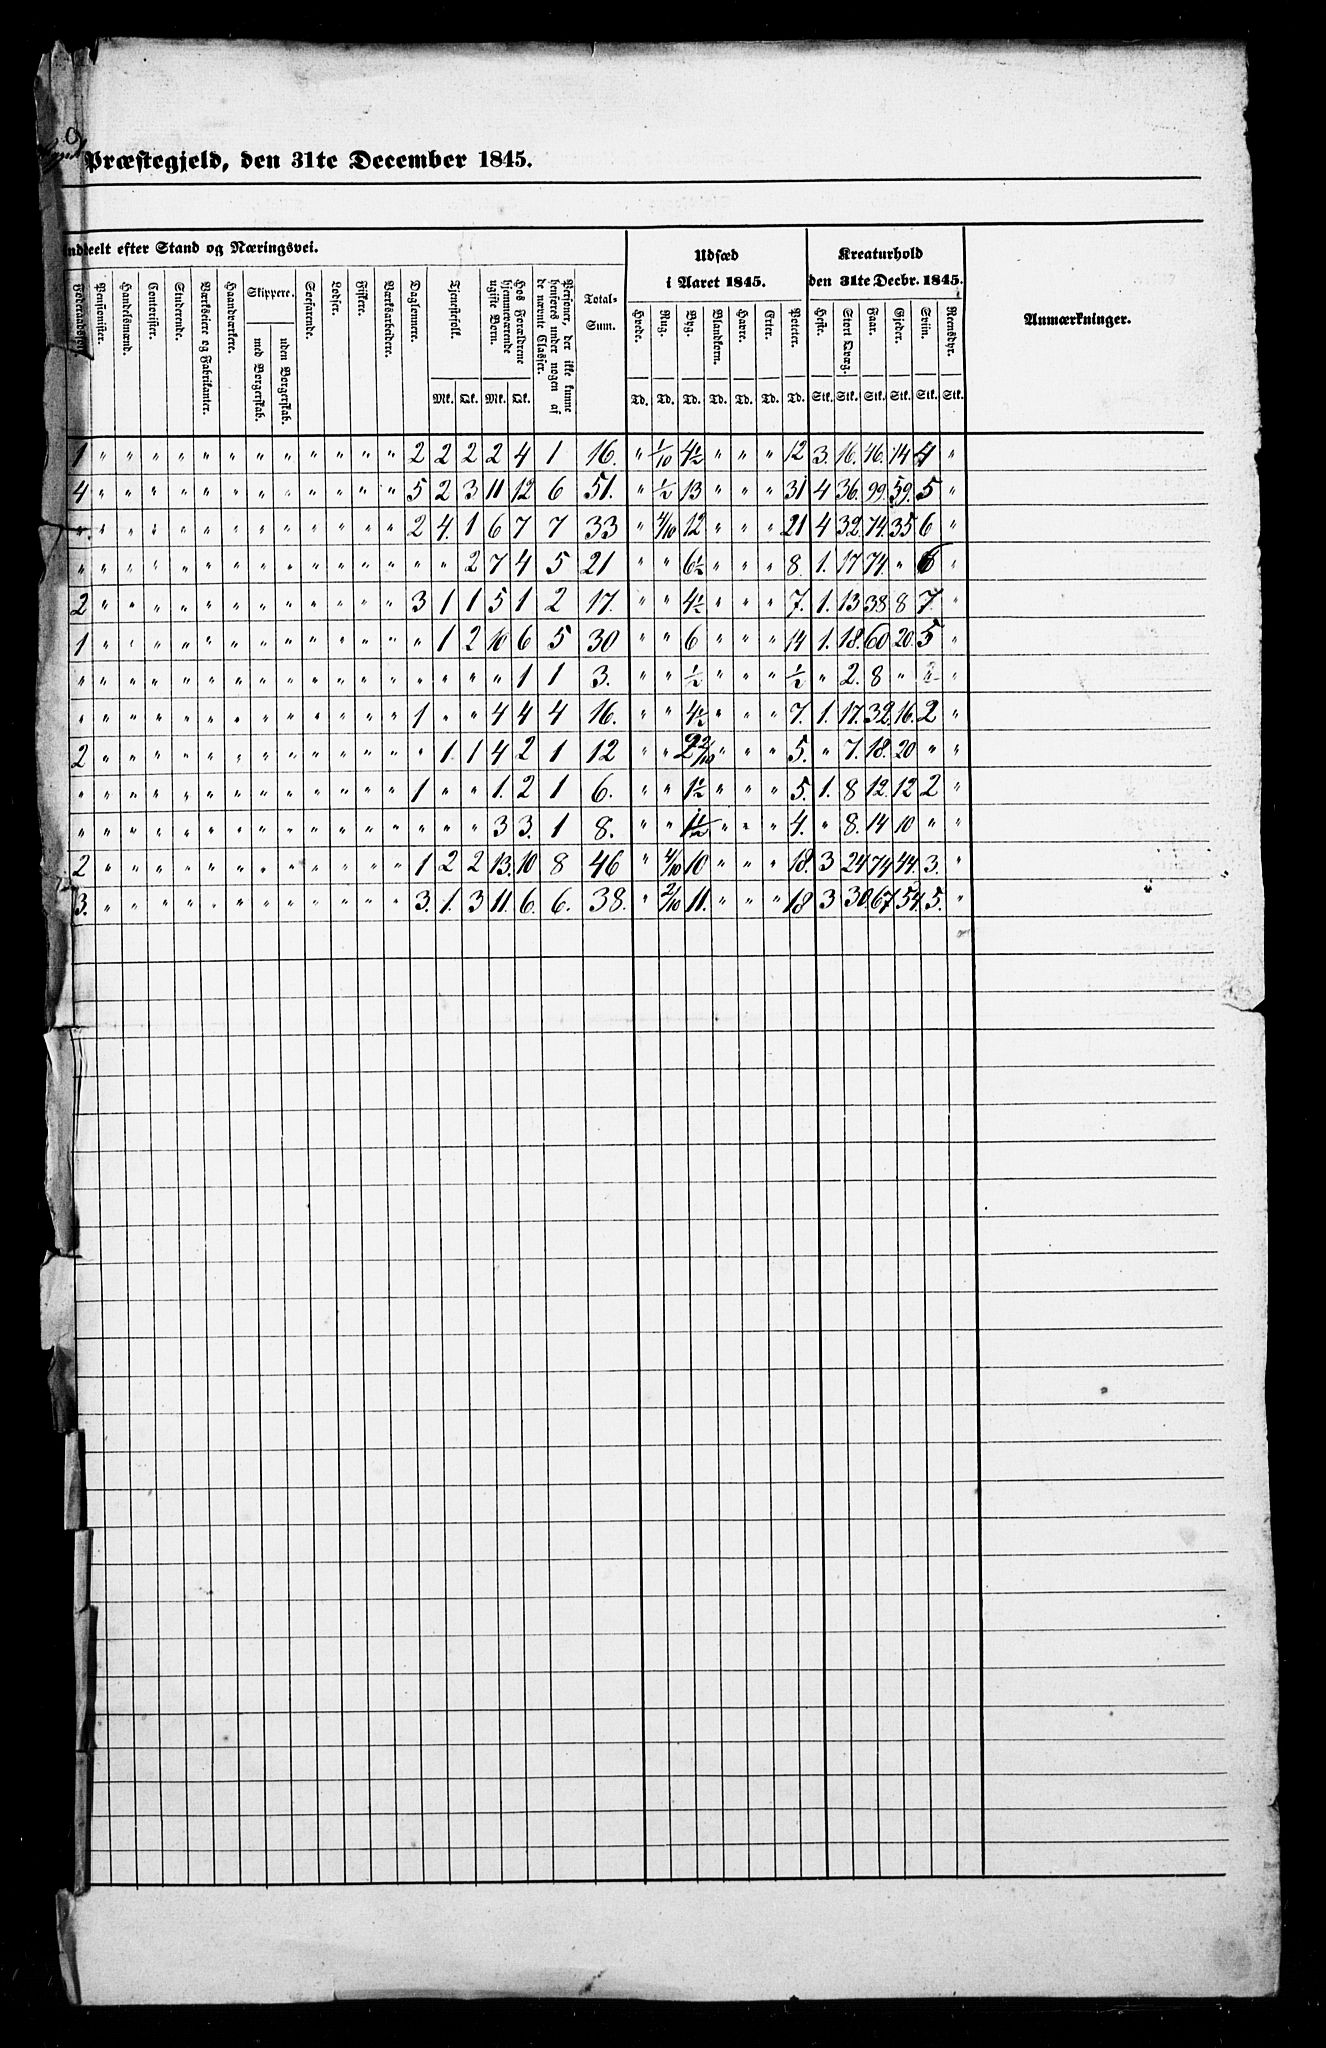 Præstegjeld, den 31te December 1845.
Inddeelt efter Stand og Næringsvei.
Udsæd
i Aaret 1845.
Kreaturhold
den 31te Decbr. 1845.
Anmærkninger.
Foderaadsfolk.
Pensionister.
Handelsmænd.
Contorister.
Studerende.
Værkseiere og Fabrikanter.
Haandværkere.
Skippere.
med Borgerskab.
uden Borgerskab.
Søefarende.
Lodser.
Fiskere.
Værksarbeidere.
Daglønnere.
Tjenestefolk.
Hos Forældrene hjemmeværende ugifte Børn.
Personer, der ikke kunne henføres under nogen af de nævnte Classer.
Total-
Sum.
Hvede.
Rug.
Byg.
Blandkorn.
Havre.
Erter.
Poteter.
Heste.
Stort Qvæg.
Faar.
Gjeder.
Sviin.
Rensdyr.
Mk. Qk. Mk. Qk. Td. Td. Td. Td. Td. Td. Td. Stk. Stk. Stk. Stk. Stk. Stk.
1 " " " " " " " " " " " " 2 2 2 2 4 1 16. " 1/10 4½ " " " 12 3. 16. 46. 14 4 "
4 " " " " " " " " " " " " 5 2 3 11 12 6 51. " ½ 13 " " " 31 4 36. 99. 59. 5 "
" " " " " " " " " " " " " 2 4. 1 6 7 7 33 " 4/10 12 " " " 21 4 32. 74. 35 6 "
" " " " " " " " " " " " " " " 2 7 4 5 21 " " 6½ " " " 8. 1. 17 74. " 6 "
2 " " " " " " " " " " " " 3 1 1 5 1 2 17. " " 4½ " " " 7. 1. 13 38 8 7. "
1 " " " " " " " " " " " " " 1 2 10 6 5 30 " " 6 " " " 14 1. 18. 60 20. 5 "
" " " " " " " " " " " " " " " " " 1 1 3. " " ½ " " " ½ " 2. 8 " "
" " " " " " " " " " " " " 1 " " 4 4 4 16. " " 4½ " " " 7. 1. 17. 32. 16. 2 "
2 " " " " " " " " " " " " " 1 1 4 2 1 12 " " 2 2/10 " " " 5. " 7. 18. 20 " "
" " " " " " " " " " " " " 1 " " 1. 2 1 6. " " 1½ " " " 5. 1. 8 12. 12 2 "
" " " " " " " " " " " " " " " " 3 3. 1 8. " " 1½ " " " 4. " 8. 14 10 " "
2 " " " " " " " " " " " " 1 2 2 13. 10 8 46 " 4/10 10 " " " 18. 3 24 74 44. 3. "
3. " " " " " " " " " " " " 3. 1. 3 11. 6. 6. 38. " 2/10 11. " " " 18 3 30. 67 54. 5. "